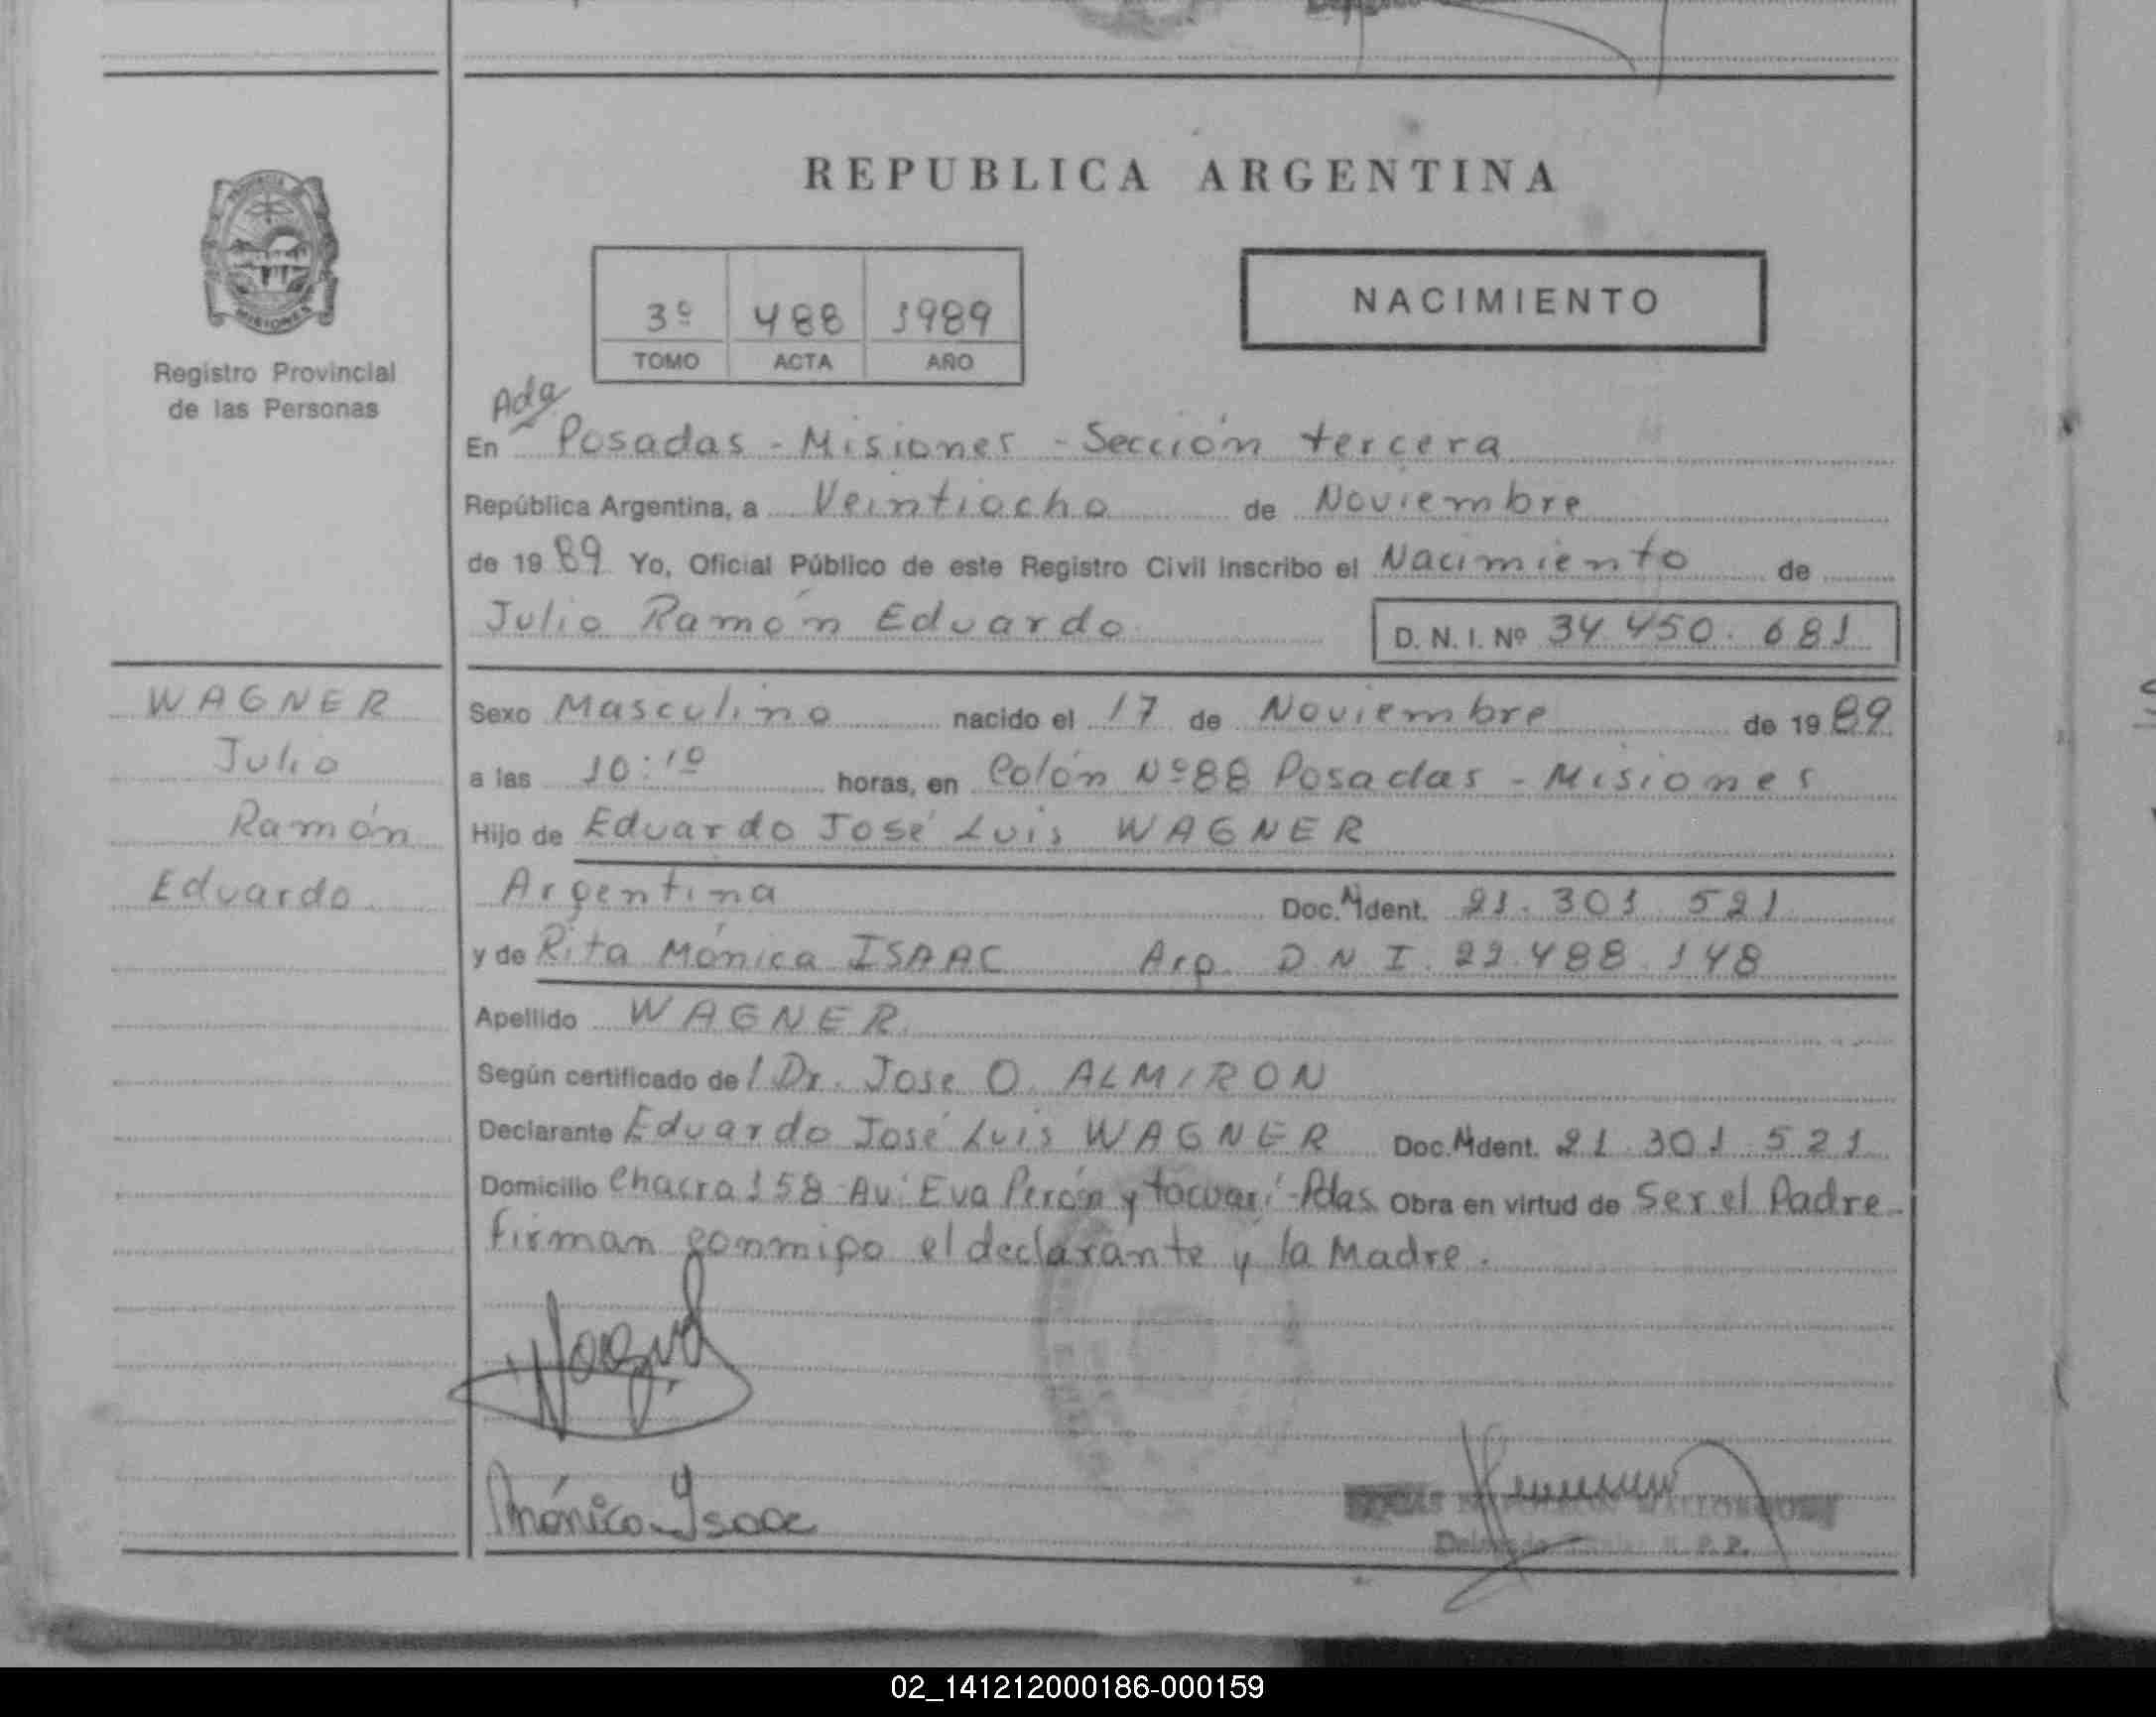 REPUBLICA ARGENTINA
PROVINCIA
MISIONES
Registro Provincial
de las Personas
3º 488 1989
TOMO ACTA AÑO
NACIMIENTO
Ada
En Posadas - Misiones - Sección tercera
República Argentina, a Veintiocho de Noviembre
de 19 89 Yo, Oficial Público de este Registro Civil inscribo el Nacimiento de
Julio Ramón Eduardo D. N. I. Nº 34.450.681
WAGNER
Julio
Ramón
Eduardo
Sexo Masculino nacido el 17 de Noviembre de 19 89
a las 10:10 horas, en Colón Nº 88 Posadas - Misiones
Hijo de Eduardo José Luis WAGNER
Argentina Doc. Ident. 21.301.521
y de Rita Mónica ISAAC Arg. D.N.I. 22.488.148
Apellido WAGNER
Según certificado del Dr. Jose O. ALMIRON
Declarante Eduardo José Luis WAGNER Doc. Ident. 21.301.521
Domicilio Chacra 158 Av. Eva Perón y Tacuarí - Pdas Obra en virtud de Ser el Padre -
firman conmigo el declarante y la Madre.
Mónica Isaac
R. P. P.
02_141212000186-000159